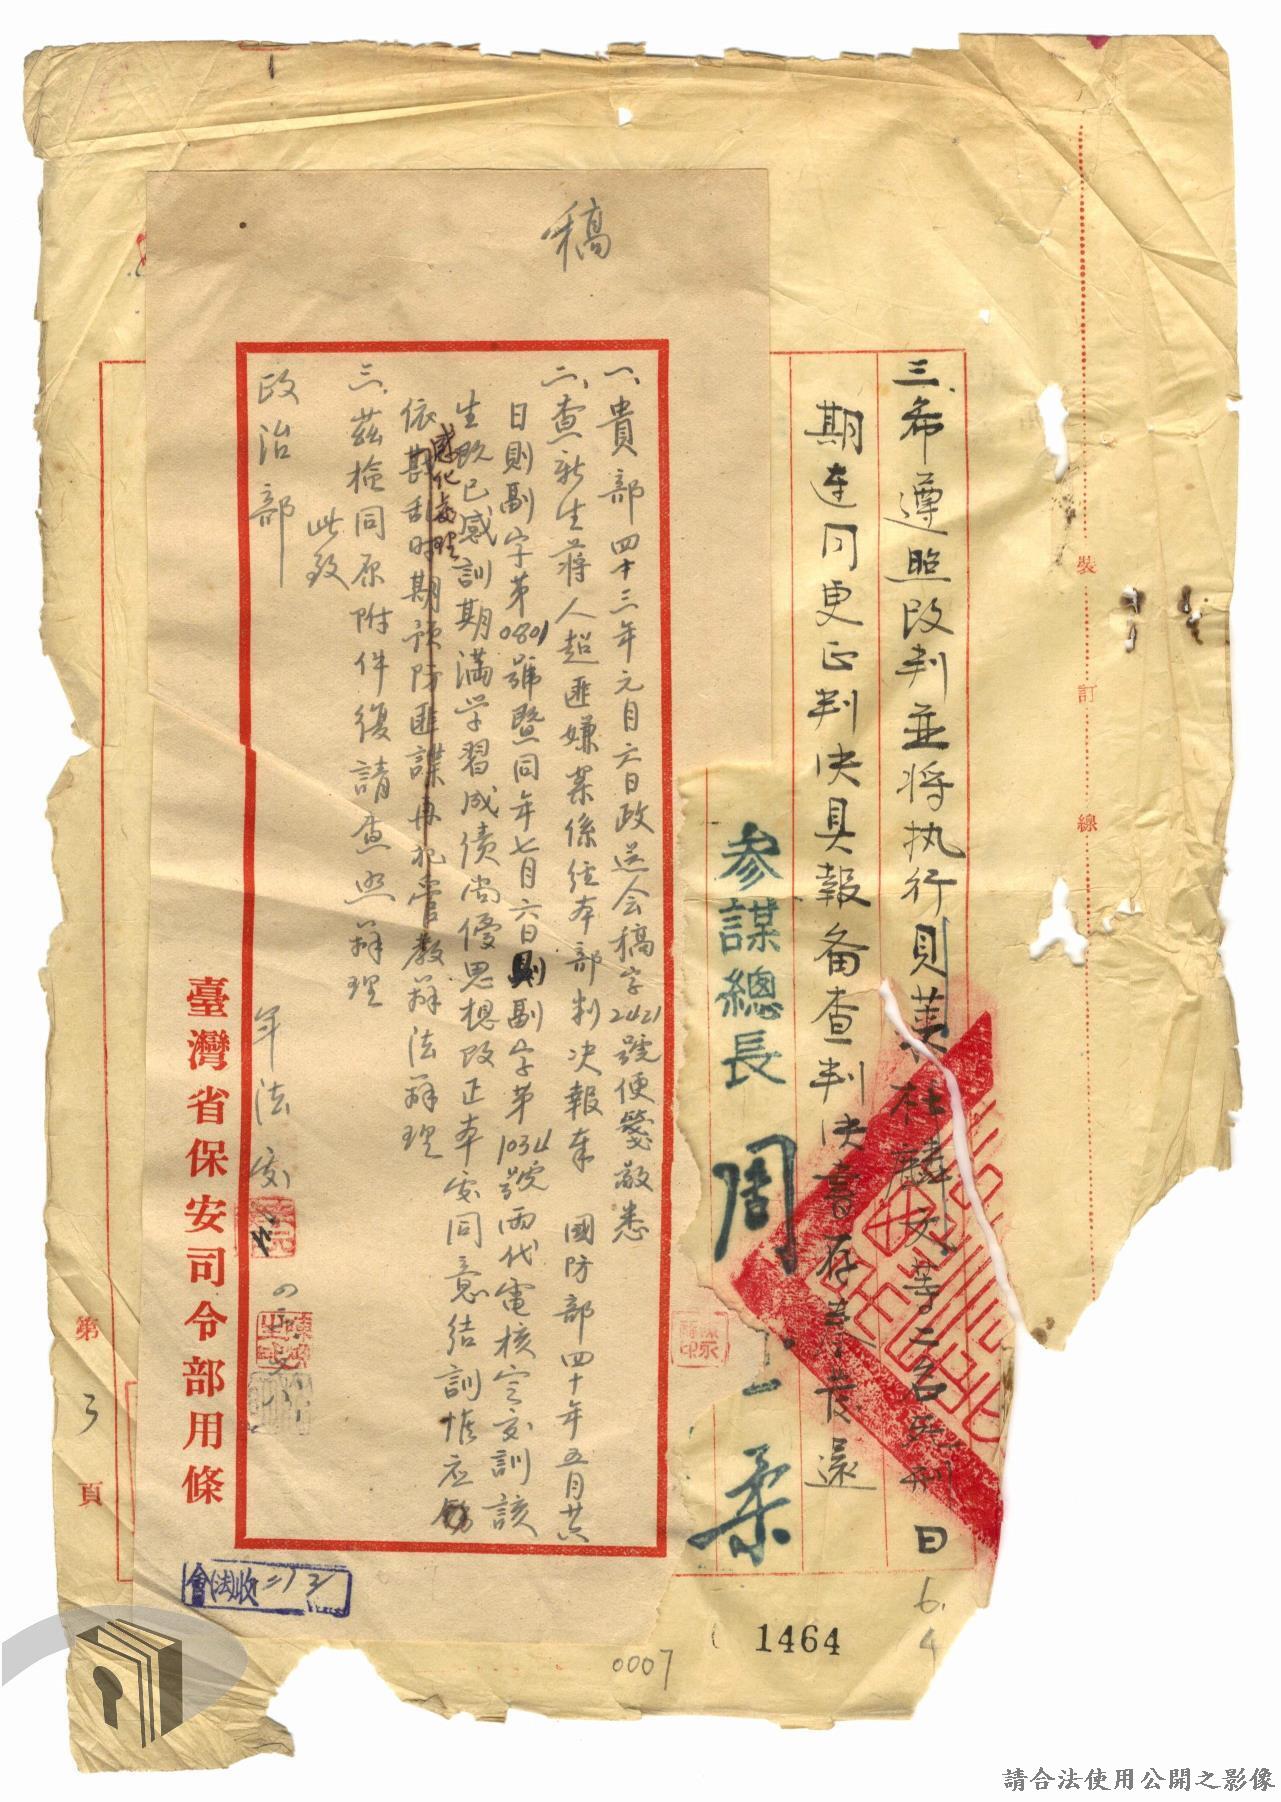 三、希遵照改判並將执行貝萊 杜麟文等二名死刑日
期連同更正判決具報備查判決書存卷發還
參謀總長 周 柔
裝 訂 線
稿
一、貴部四十三年元月六日政送会稿字2421號便箋敬悉
二、查新生蔣人超匪嫌案係經本部判決報奉 國防部四十年五月廿六
日則副字第0801號暨同年七月六日則副字第1034號兩代電核定交訓該
生既已感訓期滿学習成績尚優思想改正本處同意結訓惟应
感化處理
依戡乱时期預防匪諜再犯管教辦法辦理
三、茲檢同原附件復請查照辦理
此致
政治部
年法
臺灣省保安司令部用條
第 3 頁
收法會
1464
0007
6.4
請合法使用公開之影像